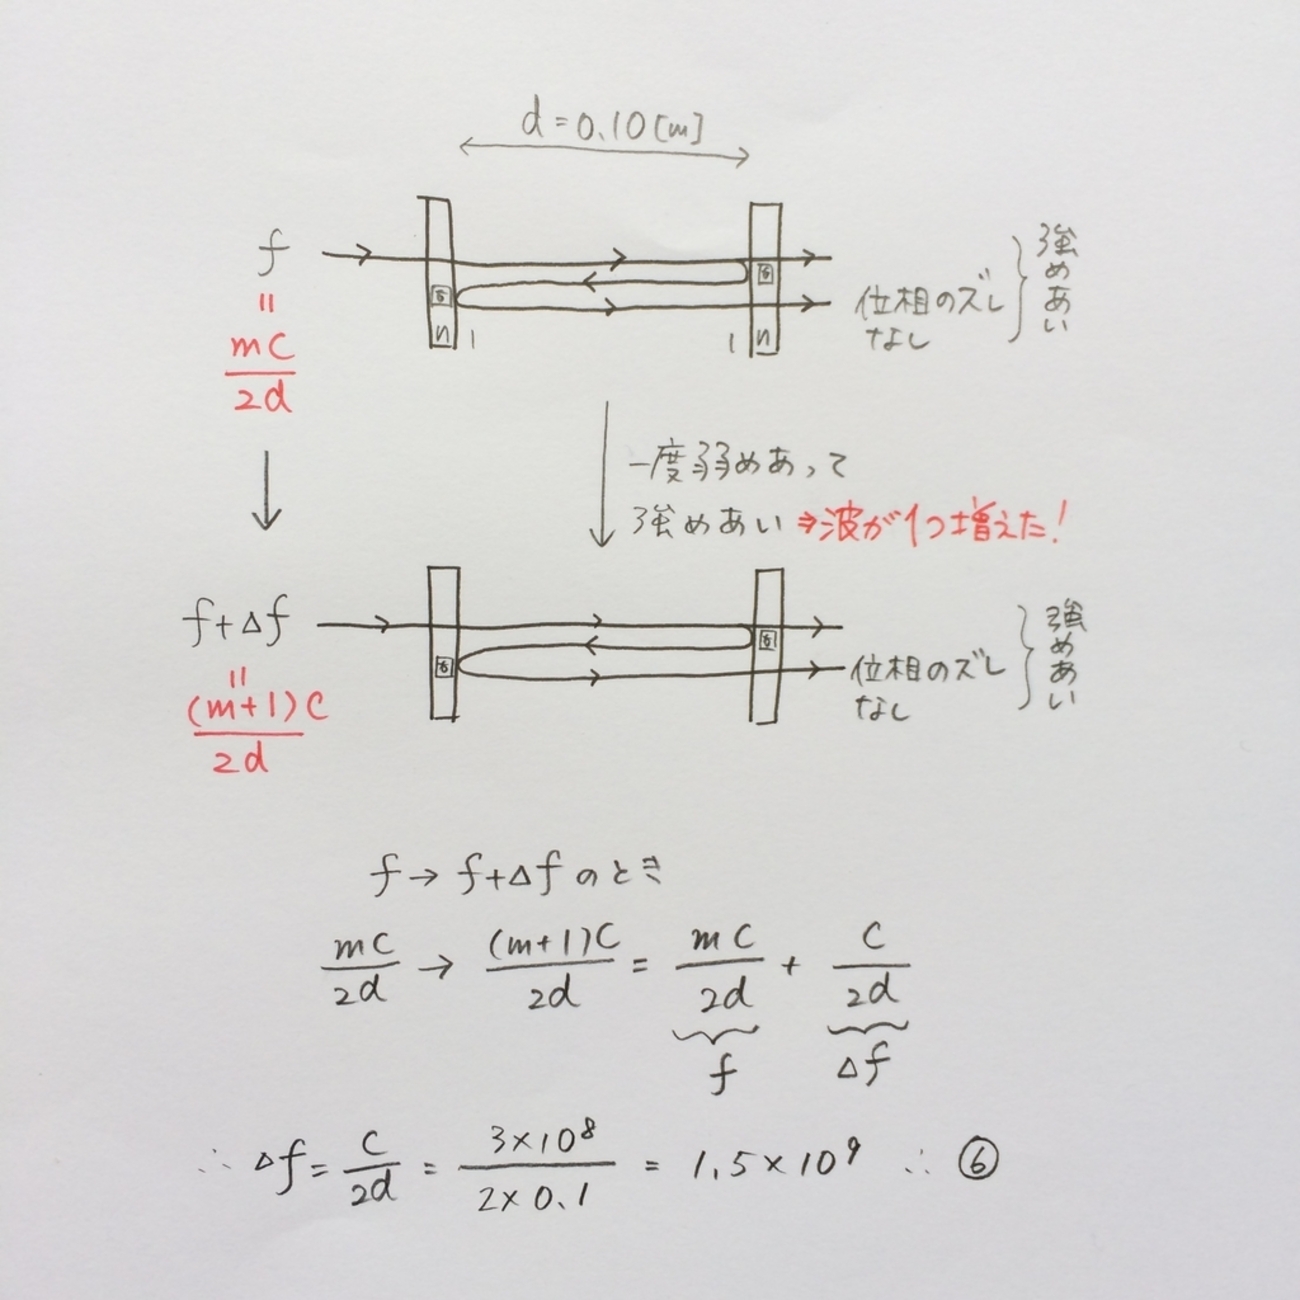 d=0.10[m]
f
=
mC/2d
固
固
n 1
1 n
位相のズレ
なし
強めあい
一度弱めあって
強めあい⇒波が1つ増えた!
f+Δf
=
(m+1)C/2d
固
固
位相のズレ
なし
強めあい
f→f+Δfのとき
mC/2d → (m+1)C/2d = mC/2d + C/2d
f Δf
∴ Δf = C/2d = 3×10⁸/2×0.1 = 1.5×10⁹ ∴ ⑥